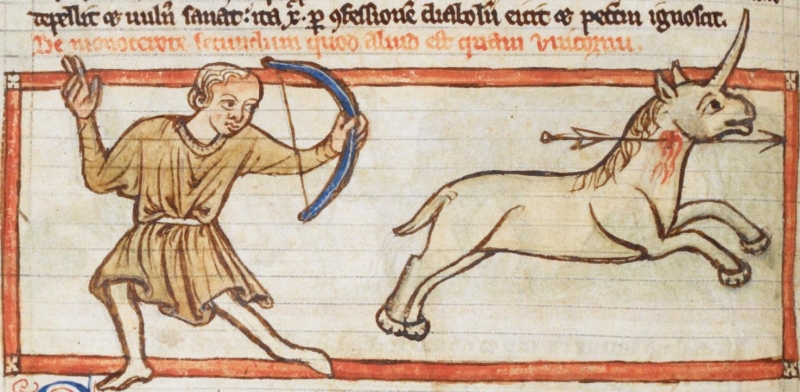 repellit & uuln̄ sanat: ita x̄. ꝑ ꝯfessionē diabolū eicit & pctm̄ ignoscit.
De monocerote secundum quod aliud est quam vnicornu.